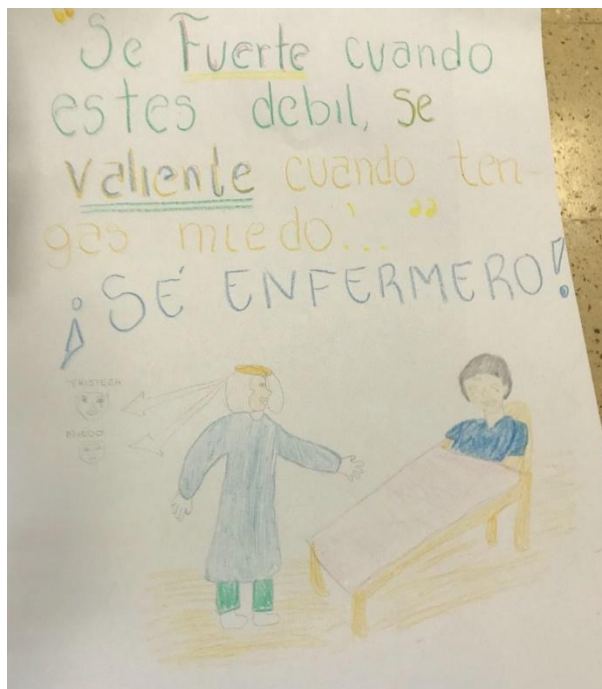 "Se Fuerte cuando
estes debil, se
valiente cuando ten-
gas miedo'... "
¡SÉ ENFERMERO!
TRISTEZA
MIEDO